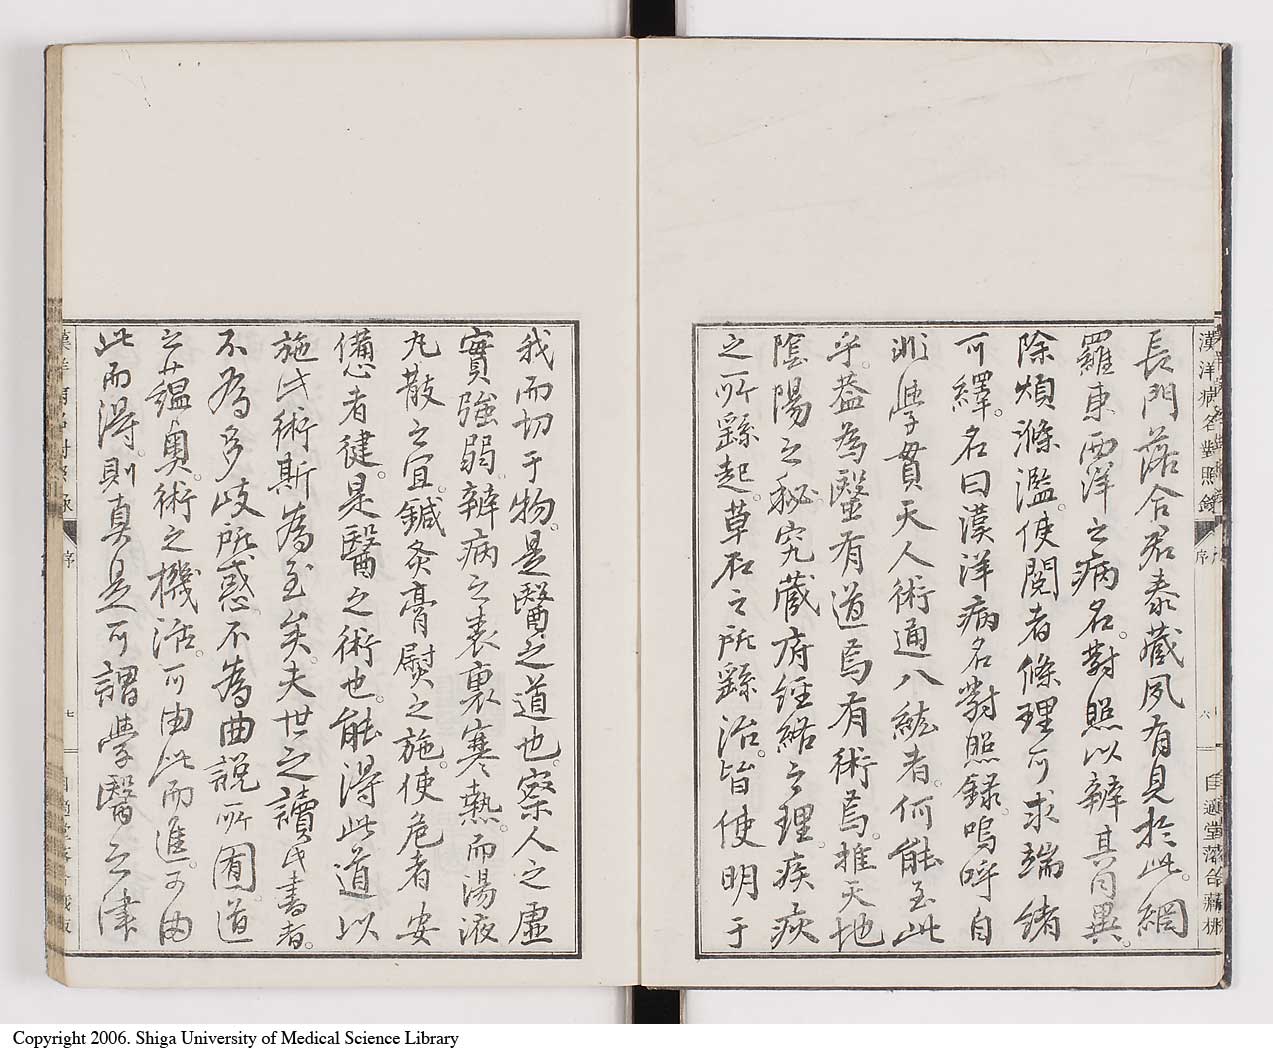 漢洋病名對照錄
序
六
自適堂落合藏板
長門落合君泰藏夙有見於此。網
羅東西洋之病名。對照以辨其同異。
除煩滌濫使閱者條理可求端緒
可繹。名曰漢洋病名對照錄。嗚呼自
非學貫天人術通八紘者。何能至此
乎。蓋為醫有道焉有術焉。推天地
陰陽之秘究藏府經絡之理。疾疢
之所繇起。草石之所繇治。皆使明于
我而切于物。是醫之道也。察人之虛
實強弱。辨病之表裏寒熱。而湯液
丸散之宜。鍼灸膏熨之施。使危者安
憊者健。是醫之術也。能得此道以
施此術斯為至矣。夫世之讀此書者。
不為多歧所惑。不為曲說所囿。道
之蘊奧。術之機活。可由此而進。可由
此而得。則真是可謂學醫之津
序
七
Copyright 2006. Shiga University of Medical Science Library